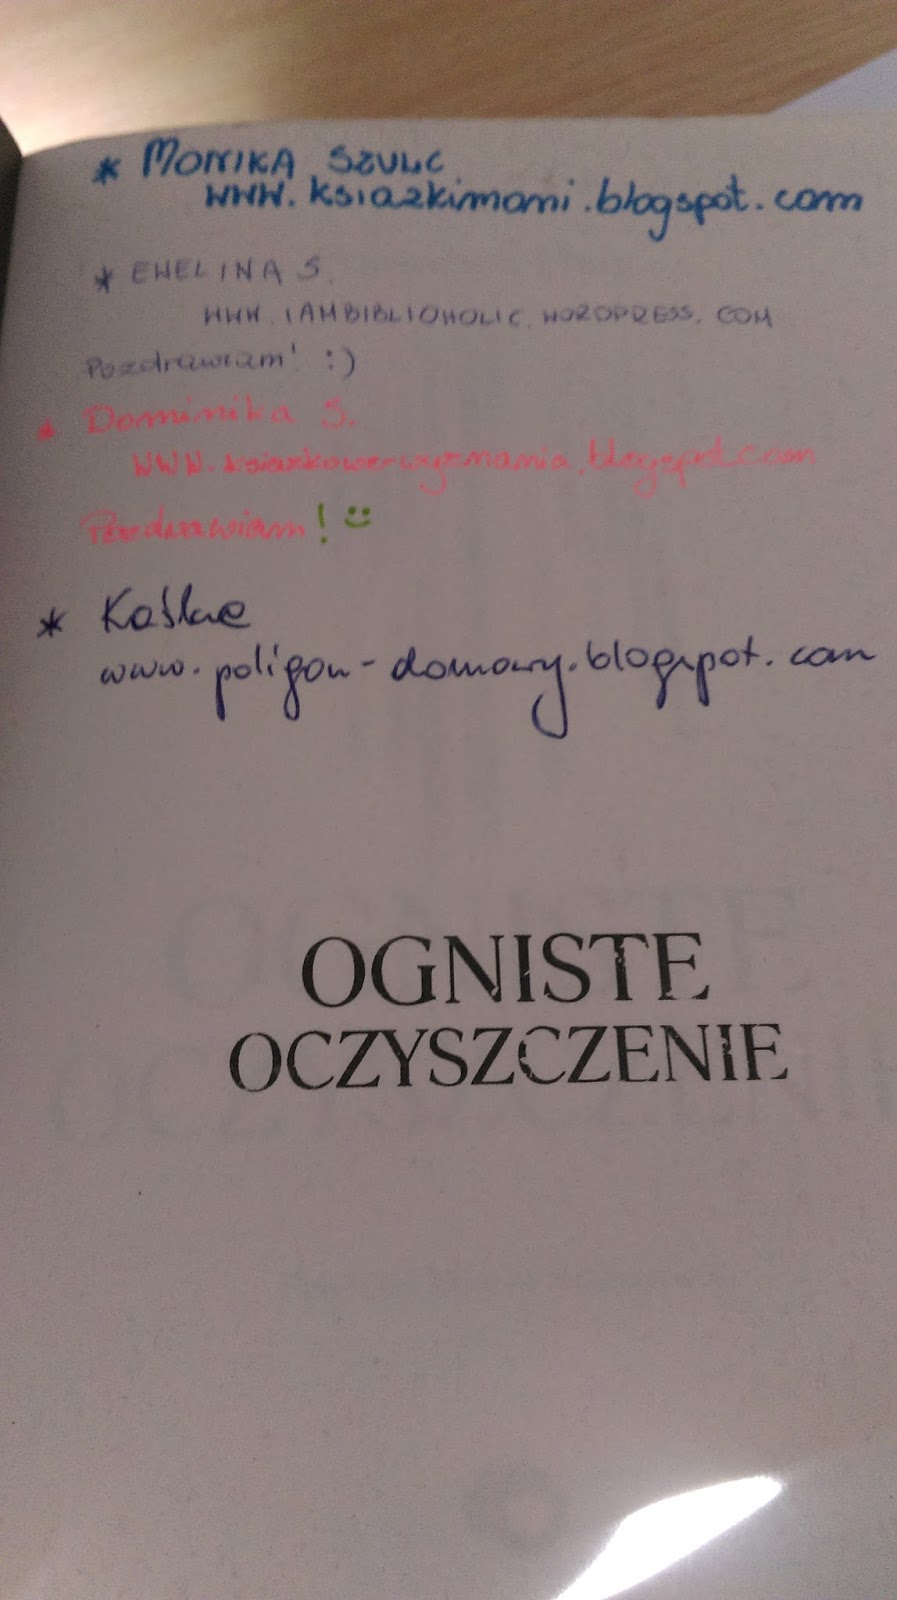 * MONIKA SZULC
www.ksiazkimoni.blogspot.com
* EWELINA S.
WWW.IAMBIBLIOHOLIC.WORDPRESS.COM
Pozdrawiam! :)
* Dominika S.
WWW.ksiazkowewyznania.blogspot.com
Pozdrawiam! :)
*
www.poligon-domowy.blogspot.com
OGNISTE
OCZYSZCZENIE